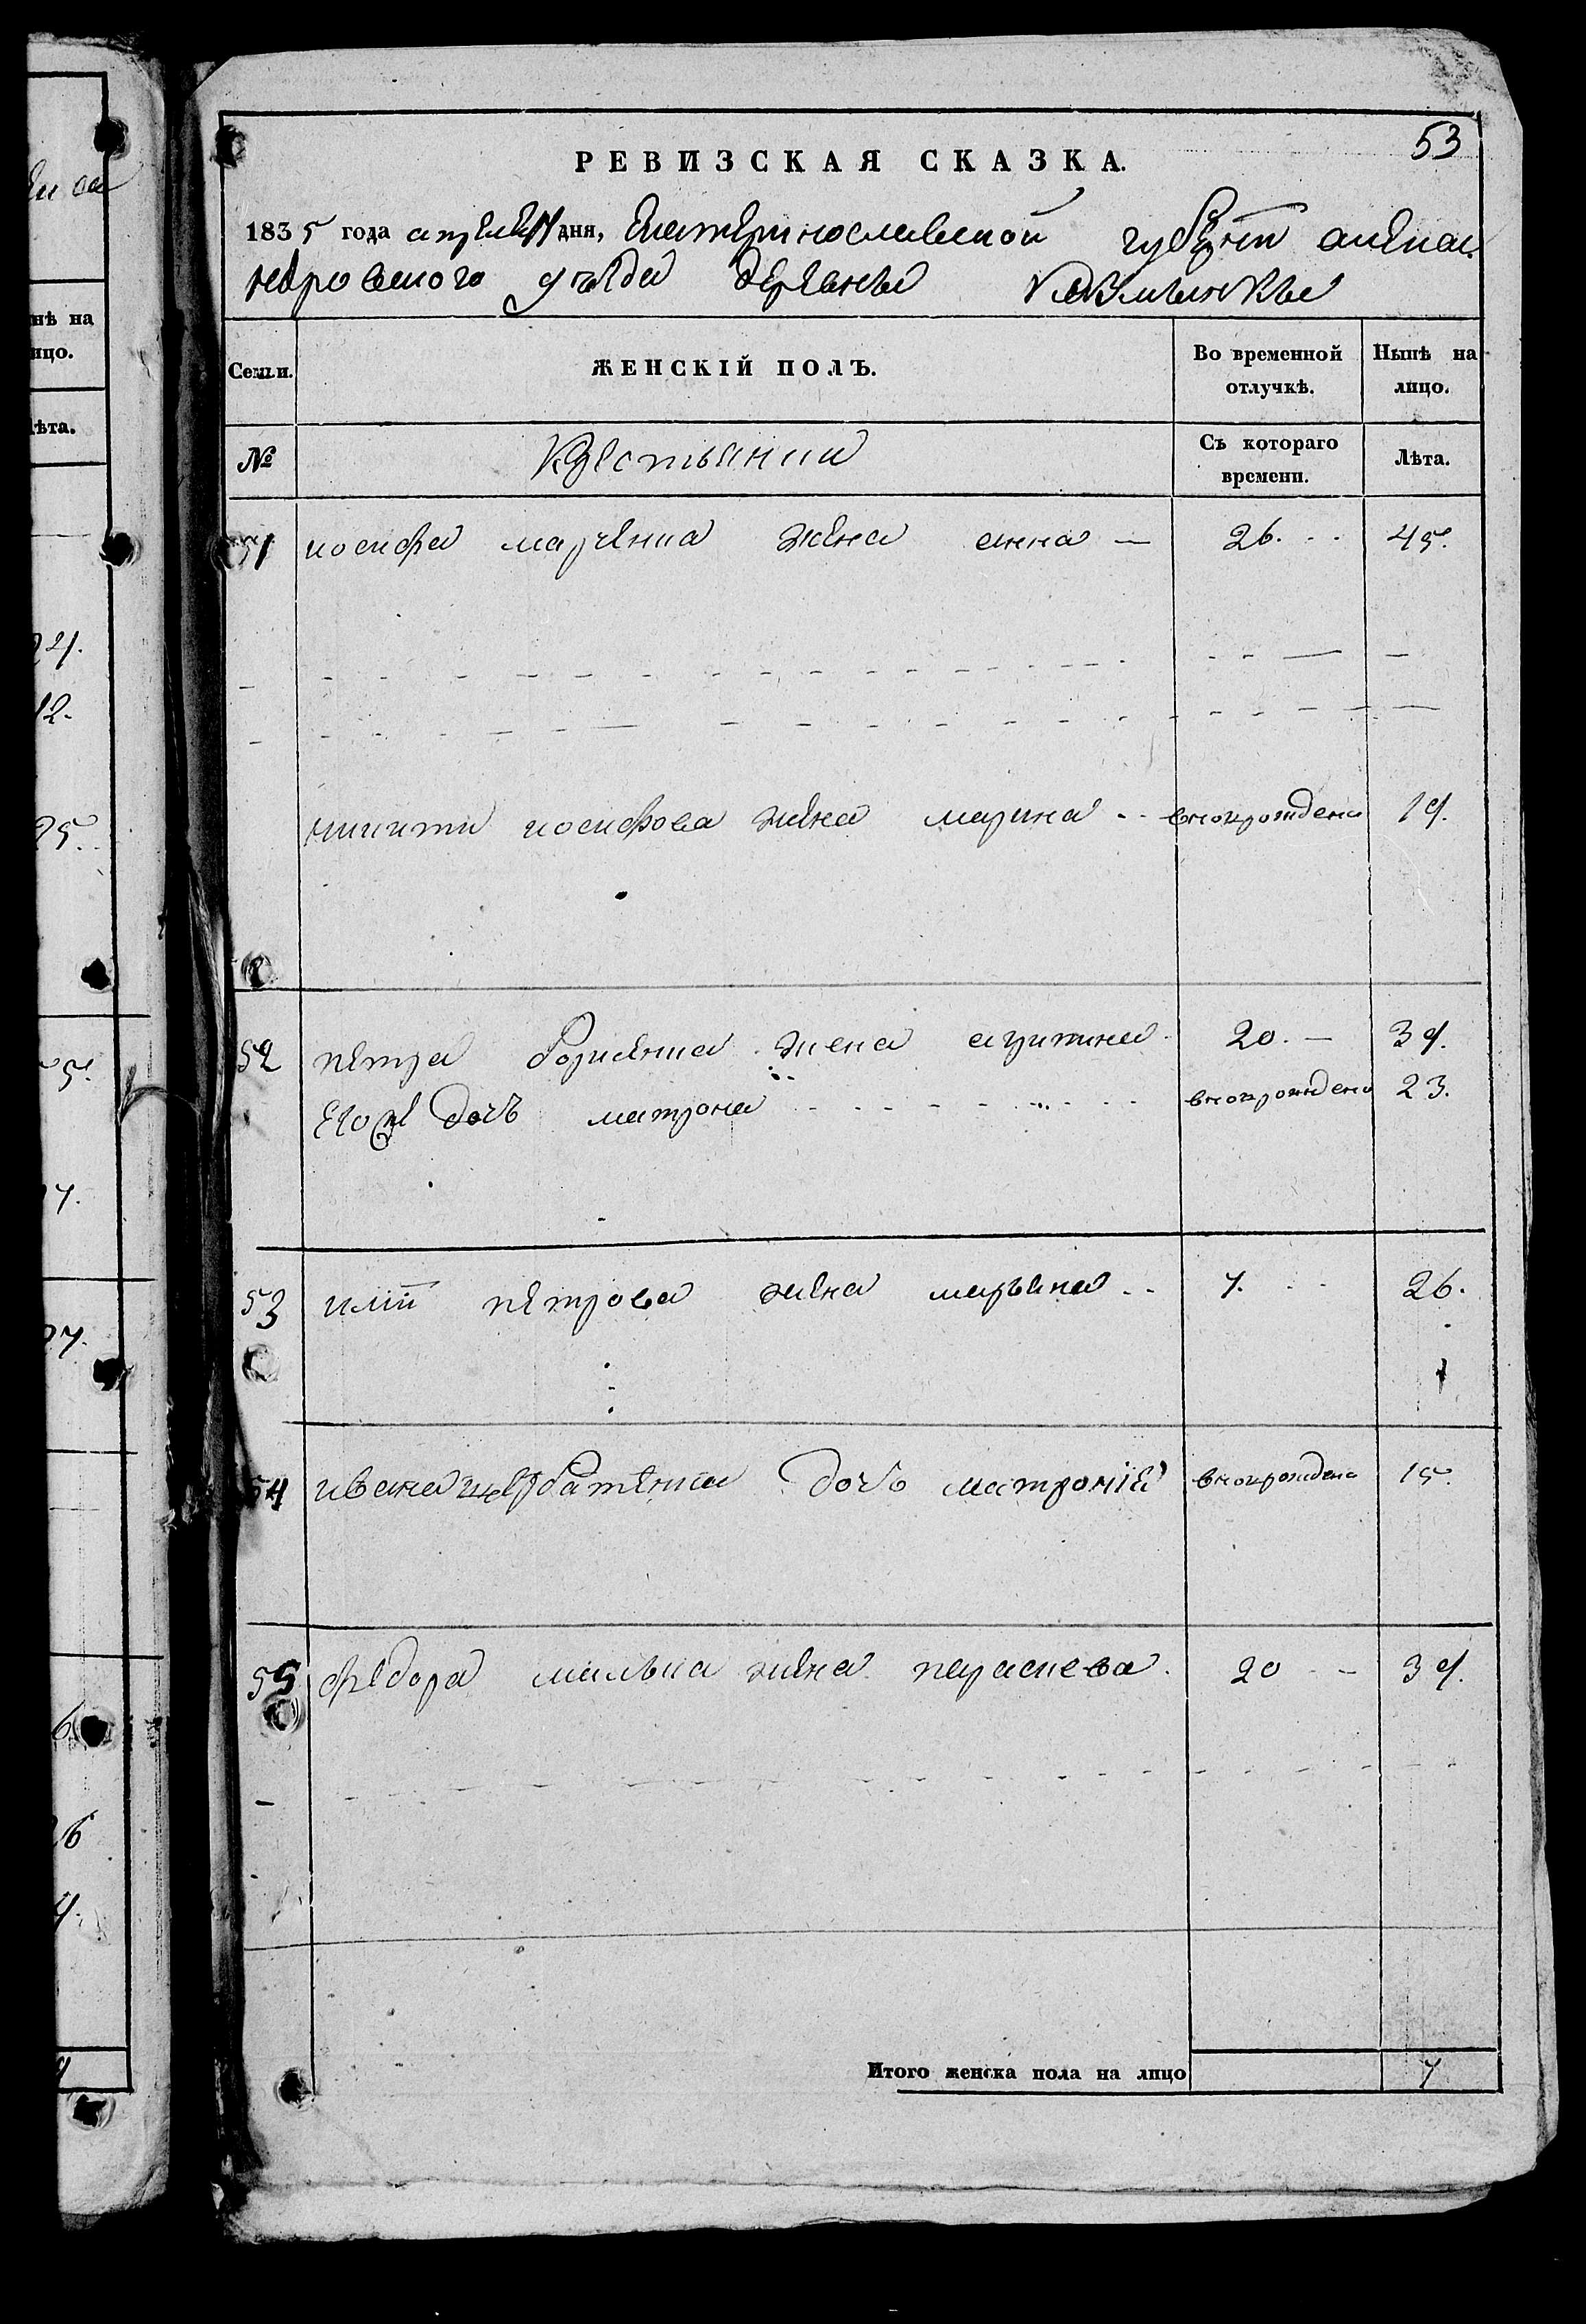 53
РЕВИЗСКАЯ СКАЗКА.
1835 года апреля дня, Екатеринославской губернїи алексан
дровского уезда деревни
Семьи. ЖЕНСКІЙ ПОЛЪ. Во временной отлучкѣ. Нынѣ на лицо.
№ Крестьянки Съ котораго времени. Лѣта.
51 иосифа марченка жена анна — 26. 45.
никиты иосифова жена марина вноврождена 19.
52 петра борисенка жена агрипина 20. — 39.
Его же дочь матрона вноврождена 23.
53 илїи петрова жена марьяна 7. 26.
54 ивана дочь матронїя вноврождена 15.
55 федора жена параскева 20 39.
Итого женска пола на лицо 7
нѣ на
ицо.
ѣта.
24.
12.